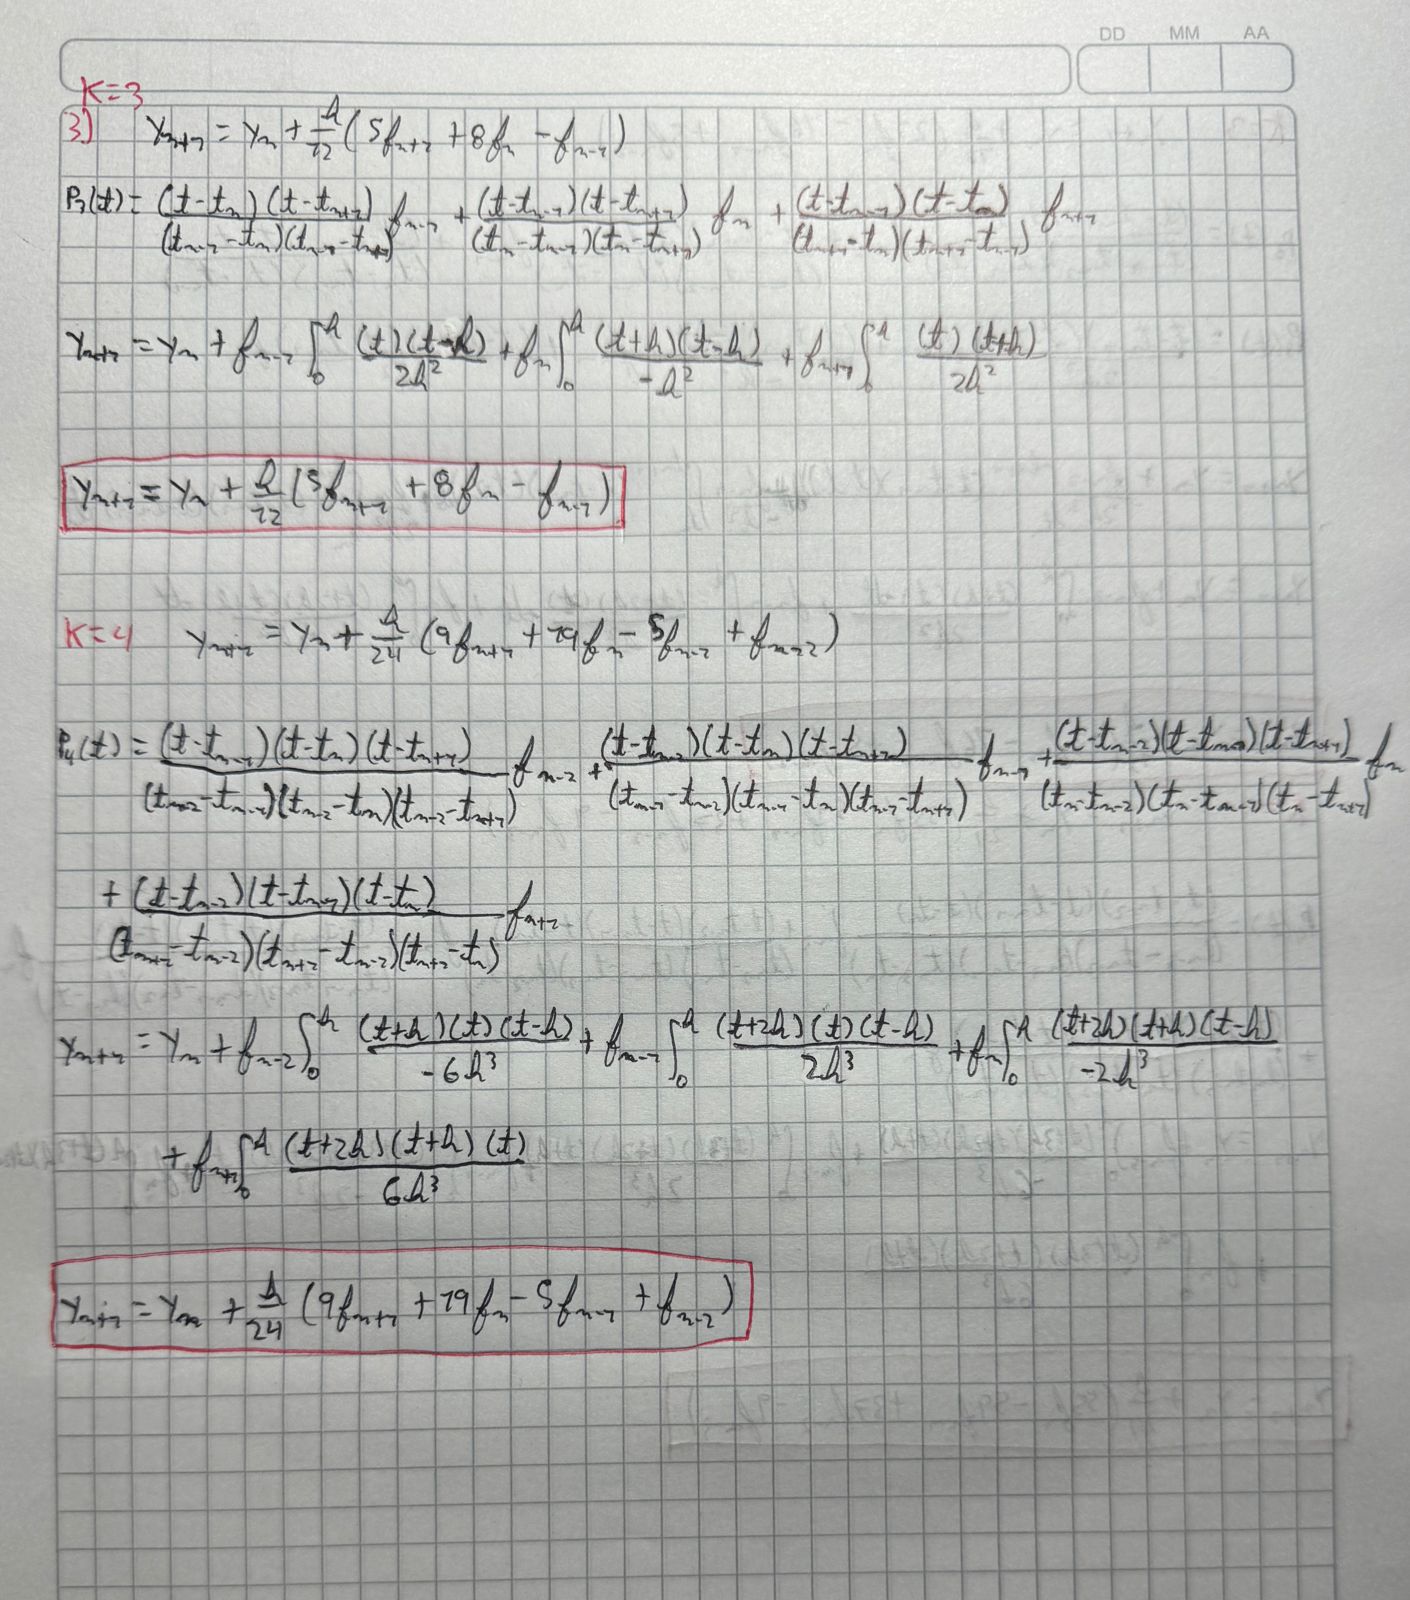 DD MM AA
K=3
3) y_{n+1} = y_n + \frac{h}{12} (5f_{n+1} + 8f_n - f_{n-1})
P_3(t) = \frac{(t-t_n)(t-t_{n+1})}{(t_{n-1}-t_n)(t_{n-1}-t_{n+1})} f_{n-1} + \frac{(t-t_{n-1})(t-t_{n+1})}{(t_n-t_{n-1})(t_n-t_{n+1})} f_n + \frac{(t-t_{n-1})(t-t_n)}{(t_{n+1}-t_n)(t_{n+1}-t_{n-1})} f_{n+1}
y_{n+1} = y_n + f_{n-1} \int_0^h \frac{(t)(t-h)}{2h^2} + f_n \int_0^h \frac{(t+h)(t-h)}{-h^2} + f_{n+1} \int_0^h \frac{(t)(t+h)}{2h^2}
y_{n+1} = y_n + \frac{h}{12} (5f_{n+1} + 8f_n - f_{n-1})
K=4 y_{n+1} = y_n + \frac{h}{24} (9f_{n+1} + 19f_n - 5f_{n-1} + f_{n-2})
P_4(t) = \frac{(t-t_{n-1})(t-t_n)(t-t_{n+1})}{(t_{n-2}-t_{n-1})(t_{n-2}-t_n)(t_{n-2}-t_{n+1})} f_{n-2} + \frac{(t-t_{n-2})(t-t_n)(t-t_{n+1})}{(t_{n-1}-t_{n-2})(t_{n-1}-t_n)(t_{n-1}-t_{n+1})} f_{n-1} + \frac{(t-t_{n-2})(t-t_{n-1})(t-t_{n+1})}{(t_n-t_{n-2})(t_n-t_{n-1})(t_n-t_{n+1})} f_n
+ \frac{(t-t_{n-2})(t-t_{n-1})(t-t_n)}{(t_{n+1}-t_{n-2})(t_{n+1}-t_{n-1})(t_{n+1}-t_n)} f_{n+1}
y_{n+1} = y_n + f_{n-2} \int_0^h \frac{(t+h)(t)(t-h)}{-6h^3} + f_{n-1} \int_0^h \frac{(t+2h)(t)(t-h)}{2h^3} + f_n \int_0^h \frac{(t+2h)(t+h)(t-h)}{-2h^3}
+ f_{n+1} \int_0^h \frac{(t+2h)(t+h)(t)}{6h^3}
y_{n+1} = y_n + \frac{h}{24} (9f_{n+1} + 19f_n - 5f_{n-1} + f_{n-2})